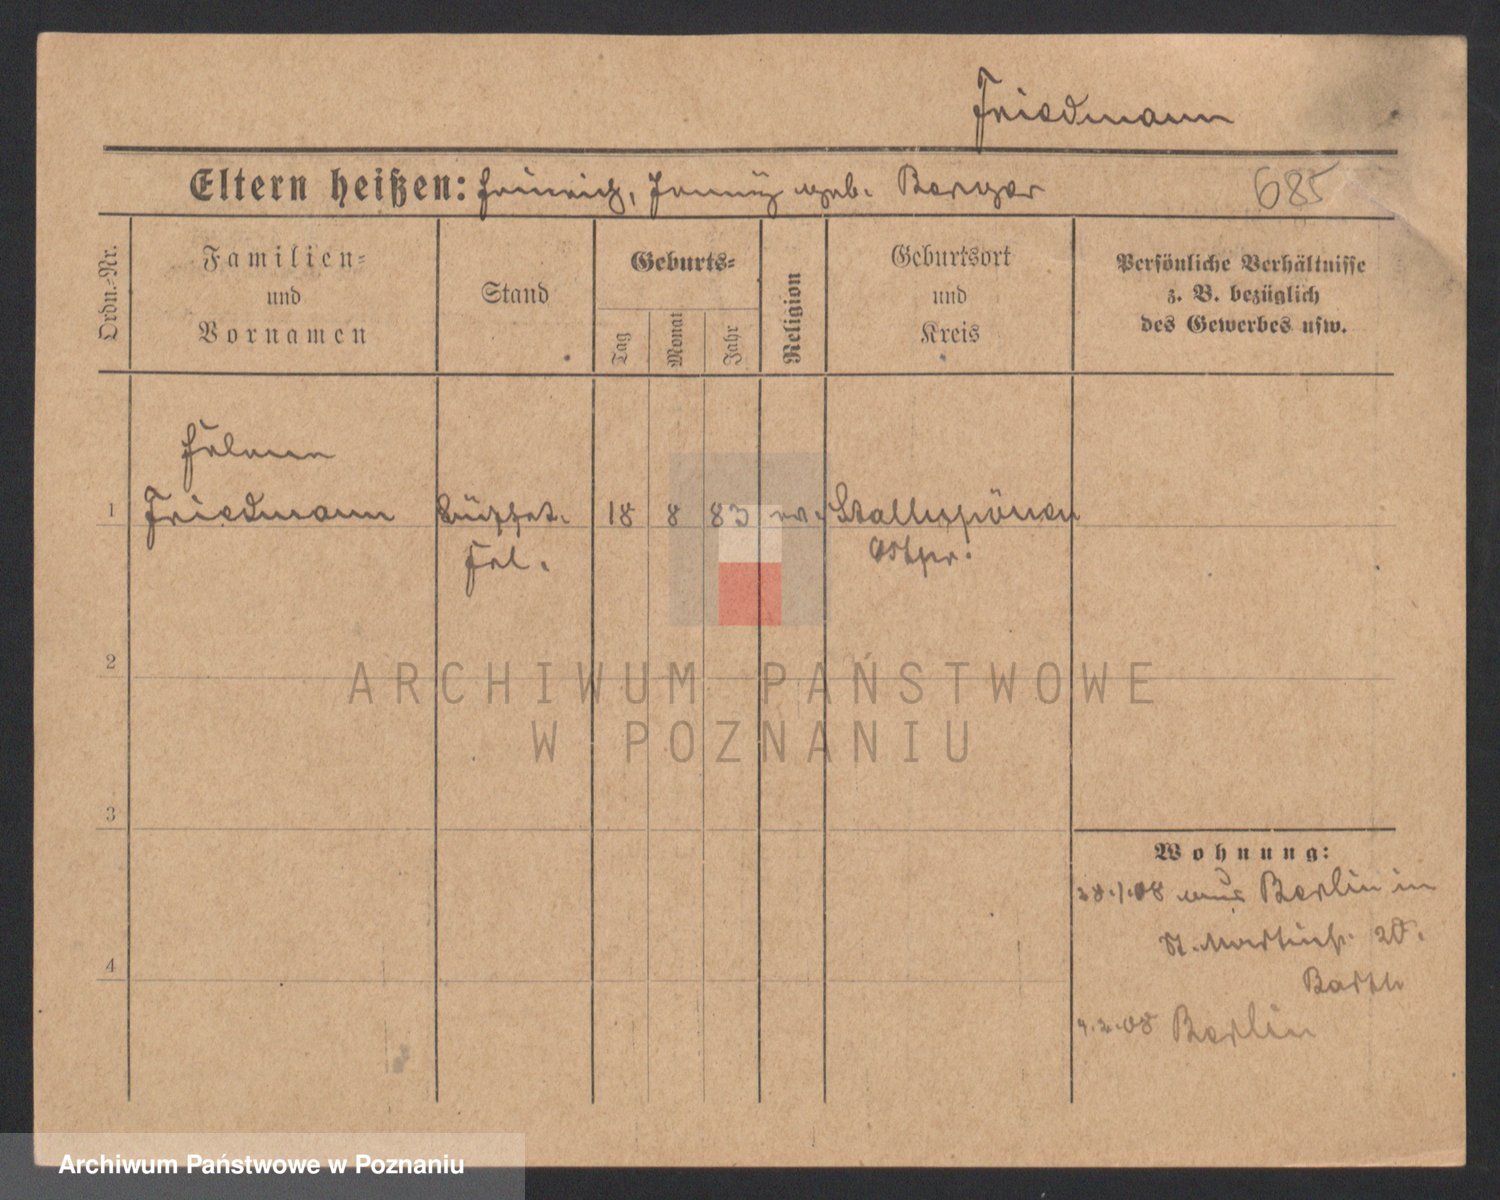 Friedmann
Eltern heißen: Heinrich, Jenny geb. Berger
685
Ordn.-Nr.
Familien-
und
Vornamen
Stand
Geburts-
Tag
Monat
Jahr
Religion
Geburtsort
und
Kreis
Persönliche Verhältnisse
z. B. bezüglich
des Gewerbes usw.
Helene
1 Friedmann Büffet. 18 8 83 ev. Stallupönen
Frl. Ostpr.
2
ARCHIWUM PAŃSTWOWE
W POZNANIU
3
Wohnung:
28.1.08 aus Berlin in
St. Martinstr. 20.
Barth
4
9.2.08 Berlin
Archiwum Państwowe w Poznaniu